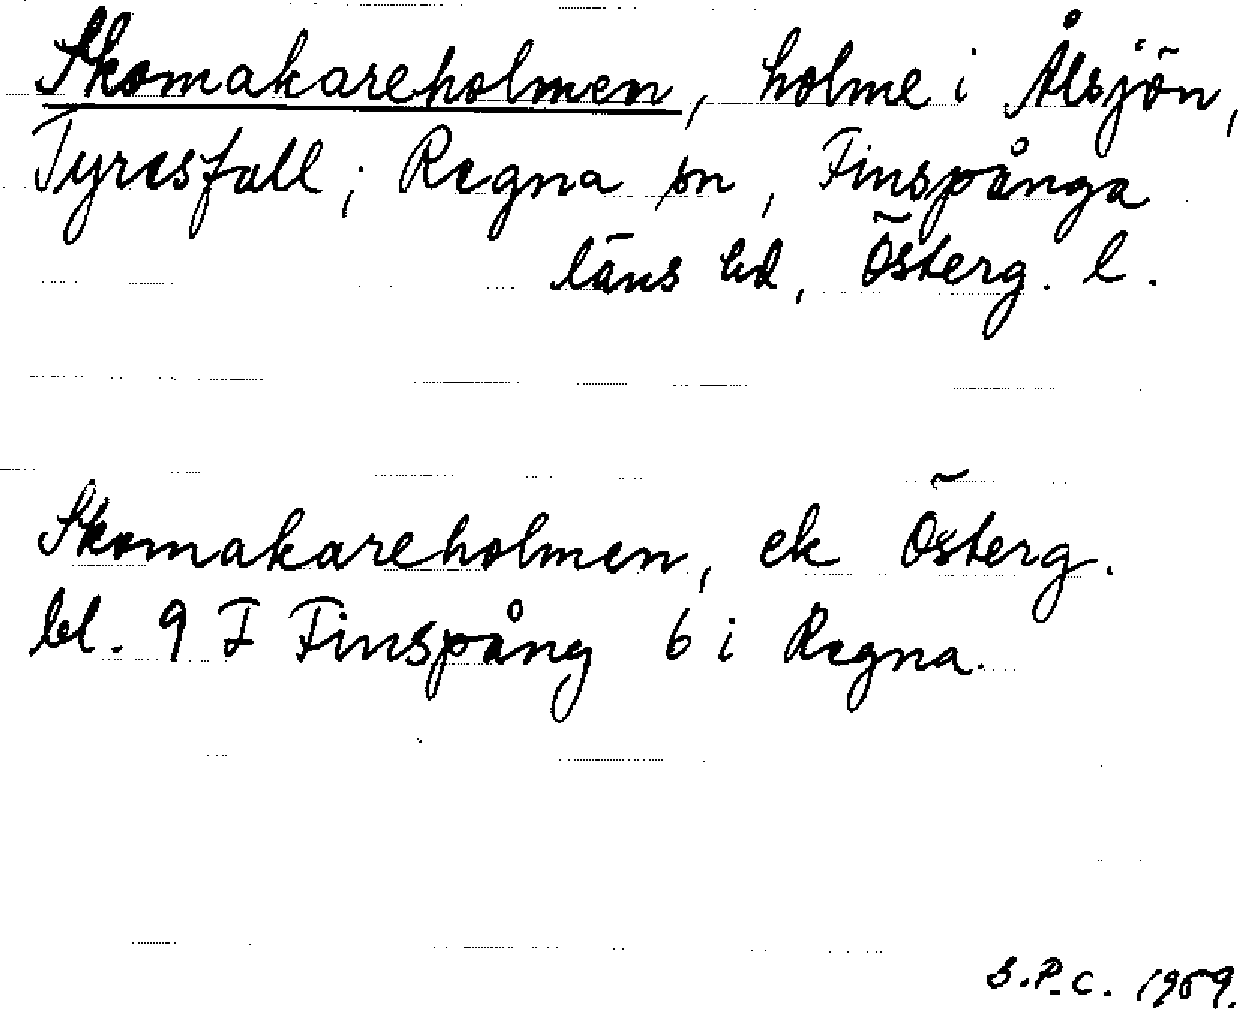 Skomakareholmen, holme i Ålsjön,
Tyresfall; Regna sn, Finspånga
läns hd, Österg. l.
Skomakareholmen, ek Österg.
bl. 9 F Finspång 6 i Regna.
S.P.C. 1959.